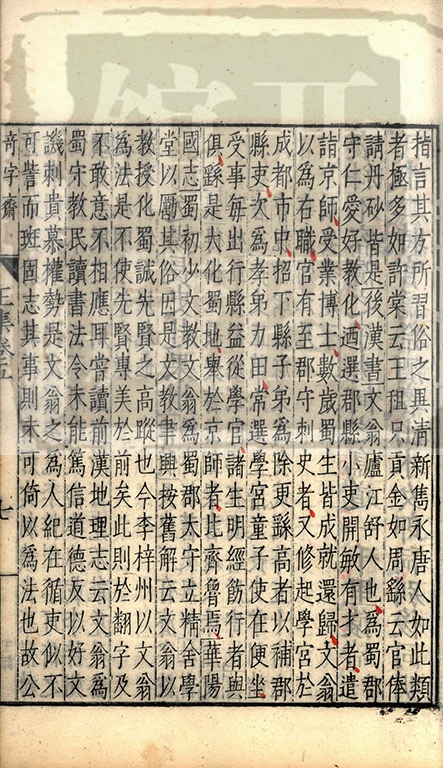 指言其方所習俗之異清新雋永唐人如此類
者極多如許棠云王租只貢金如周繇云官俸
請丹砂皆是後漢書文翁廬江舒人也為蜀郡
守仁愛好教化迺選郡縣小吏開敏有才者遣
詣京師受業博士數歲蜀生皆成就還歸文翁
以為右職官有至郡守刺史者又修起學宮於
成都市中招下縣子弟為除更繇高者以補郡
縣吏次為孝弟力田常選學宮童子使在便坐
受事每出行縣益從學官諸生明經飭行者與
俱繇是大化蜀地學於京師者比齊魯焉華陽
國志蜀初少文教文翁為蜀郡太守立精舍學
堂以勵其俗因是文教事興按舊解云文翁以
教授化蜀誠先賢之高蹤也今李梓州以文翁
為法是不使先賢專美於前矣此則於翻字及
不敢意不相應耳嘗讀前漢地理志云文翁為
蜀守教民讀書法令未能篤信道德反以好文
譏刺貴慕權勢是文翁之為人紀在循吏似不
可訾而班固志其事則未可倚以為法也故公
奇字齋
七